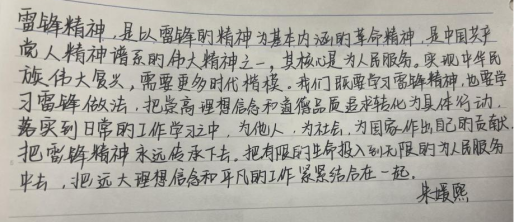 雷锋精神,是以雷锋的精神为基本内涵的革命精神,是中国共产
党人精神谱系的伟大精神之一,其核心是为人民服务。实现中华民
族伟大复兴,需要更多时代楷模。我们既要学习雷锋精神,也要学
习雷锋做法,把崇高理想信念和道德品质追求转化为具体行动,
落实到日常的工作学习之中,为他人,为社会,为国家作出自己的贡献,
把雷锋精神永远传承下去。把有限的生命投入到无限的为人民服务
中去,把远大理想信念和平凡的工作紧紧结合在一起。
朱媛熙